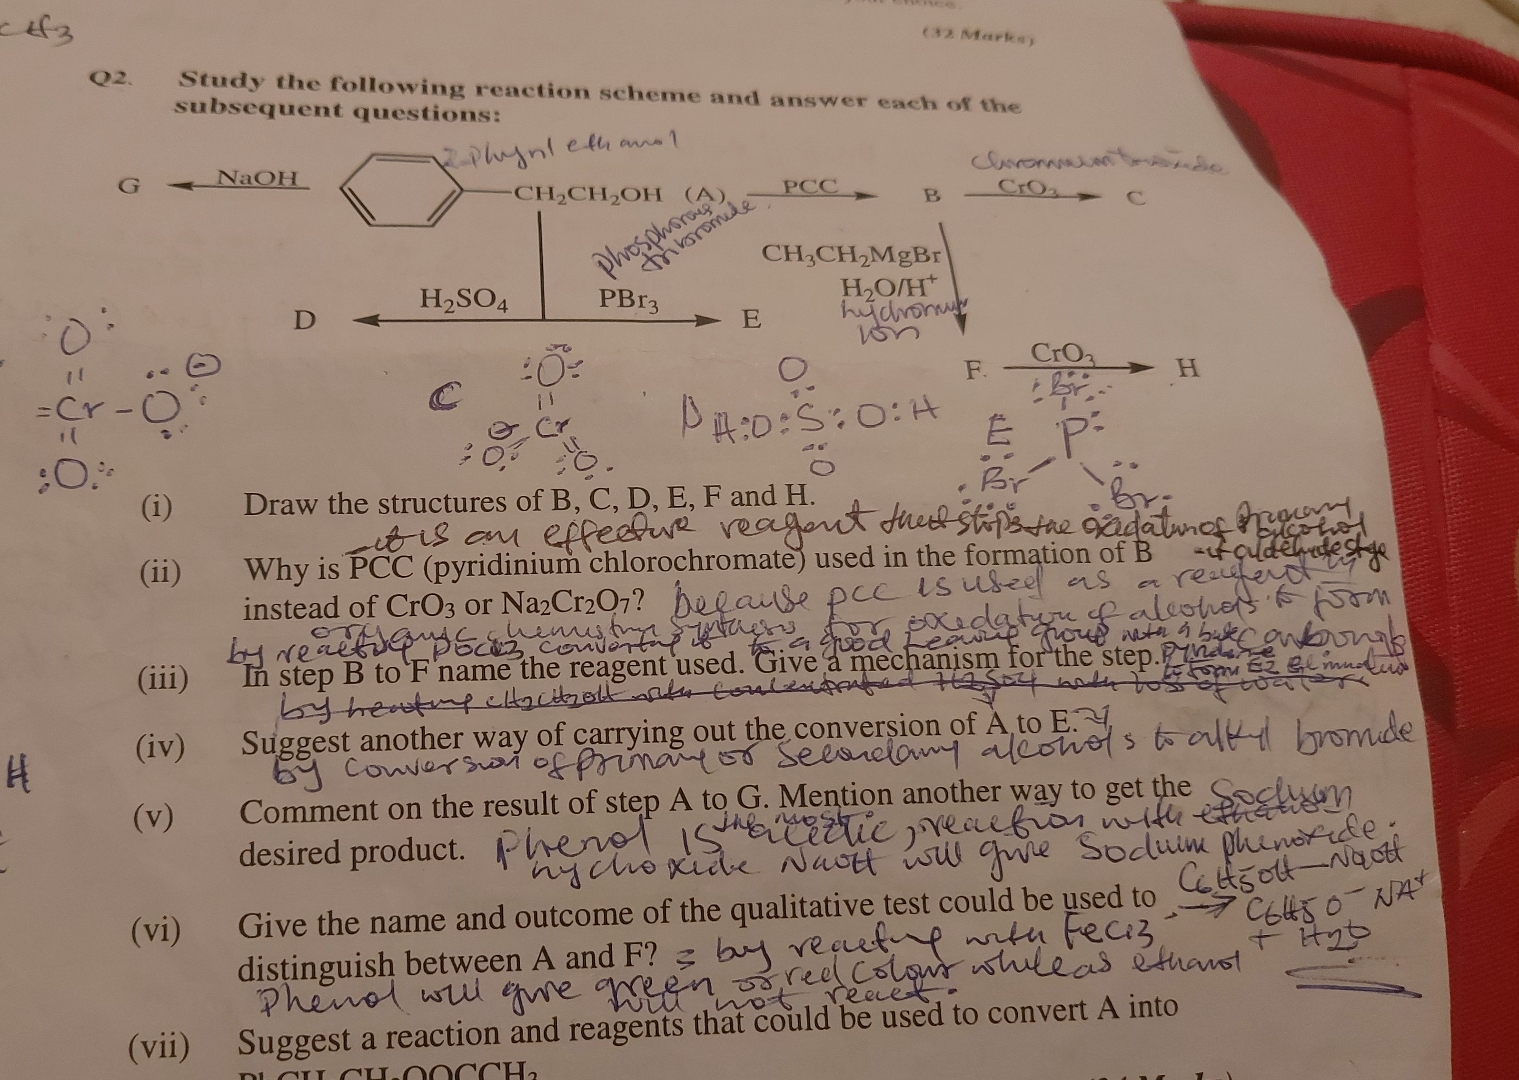 CH3
(32 Marks)
Q2. Study the following reaction scheme and answer each of the
subsequent questions:
2-Phynl ethanol
G NaOH CH₂CH₂OH (A) PCC B CrO₃ C
Phosphorous
tribromide
CH₃CH₂MgBr
H₂O/H⁺
ion
D H₂SO₄ PBr₃ E
F. CrO₃ H
O
O
=Cr-O
O
C
O
Cr
O O
D H:O:S:O:H
O
O
E
Br
P
Br Br
(i) Draw the structures of B, C, D, E, F and H.
it is an effective reagent that stops the oxidation of Primary
alcohol
(ii) Why is PCC (pyridinium chlorochromate) used in the formation of B
instead of CrO₃ or Na₂Cr₂O₇? because pcc is used as a reagent
organic chemistry for oxedature of alcohols to form
by reacting to a good leaving group with a base
(iii) In step B to F name the reagent used. Give a mechanism for the step.
to form E2
by heating with concentrated H2SO4 with loss of water
(iv) Suggest another way of carrying out the conversion of A to E.
by conversion of primary or secondary alcohols to alkyl bromide
(v) Comment on the result of step A to G. Mention another way to get the
desired product. Phenol is the most acidic, reaction with ethanol Sodium
hychoxide NaoH will give Sodium phenoxide.
C6H5OH—NaOH
→ C6H5O⁻ NA⁺
+ H2O
(vi) Give the name and outcome of the qualitative test could be used to
distinguish between A and F? = by reacting with Fecl3
Phenol will give green or red Colour while as ethanol
will not react.
(vii) Suggest a reaction and reagents that could be used to convert A into
H